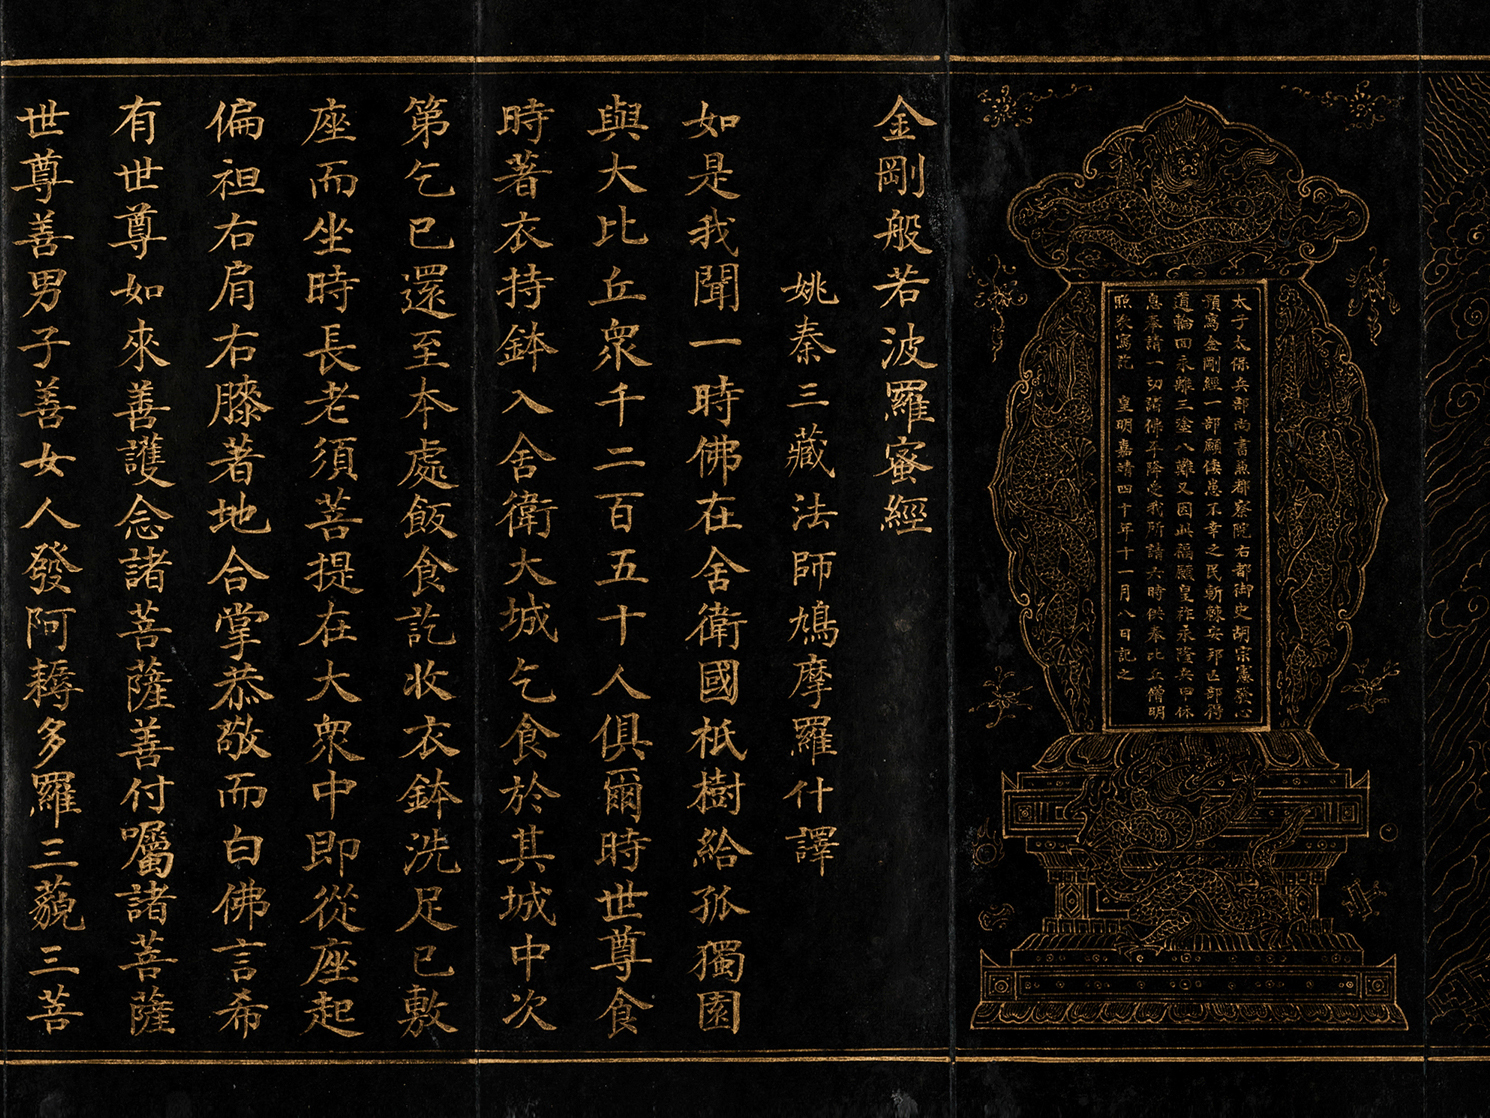 太子太保兵部尚書兼都察院右都御史胡宗憲發心
願寫金剛經一部願倭患不幸之民
輪回永離三塗八難又因此福願皇祚永隆兵甲休
息奉請一切諸佛我所請六時供奉比丘明
皇明嘉靖四十年十一月八日記之
金剛般若波羅蜜經
姚秦三藏法師鳩摩羅什譯
如是我聞一時佛在舍衛國祇樹給孤獨園
與大比丘眾千二百五十人俱爾時世尊食
時著衣持鉢入舍衛大城乞食於其城中次
第乞已還至本處飯食訖收衣鉢洗足已敷
座而坐時長老須菩提在大眾中即從座起
偏袒右肩右膝著地合掌恭敬而白佛言希
有世尊如來善護念諸菩薩善付囑諸菩薩
世尊善男子善女人發阿耨多羅三藐三菩